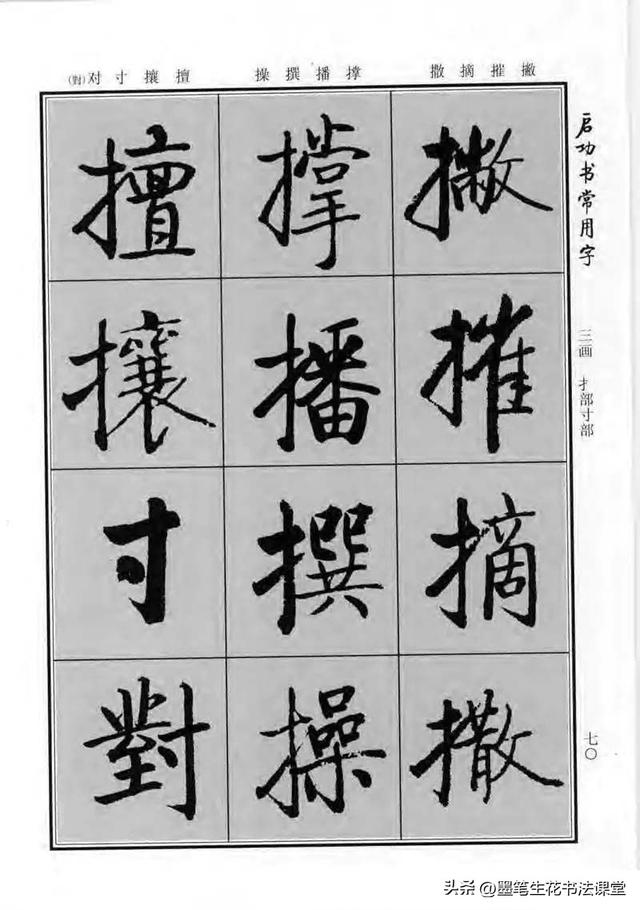 撇摧摘撒 撑播撰操 擅攘寸对(對)
启功书常用字
三画 扌部寸部
七〇
撇摧摘撒
撑播撰操
擅攘寸對
头条 @墨笔生花书法课堂